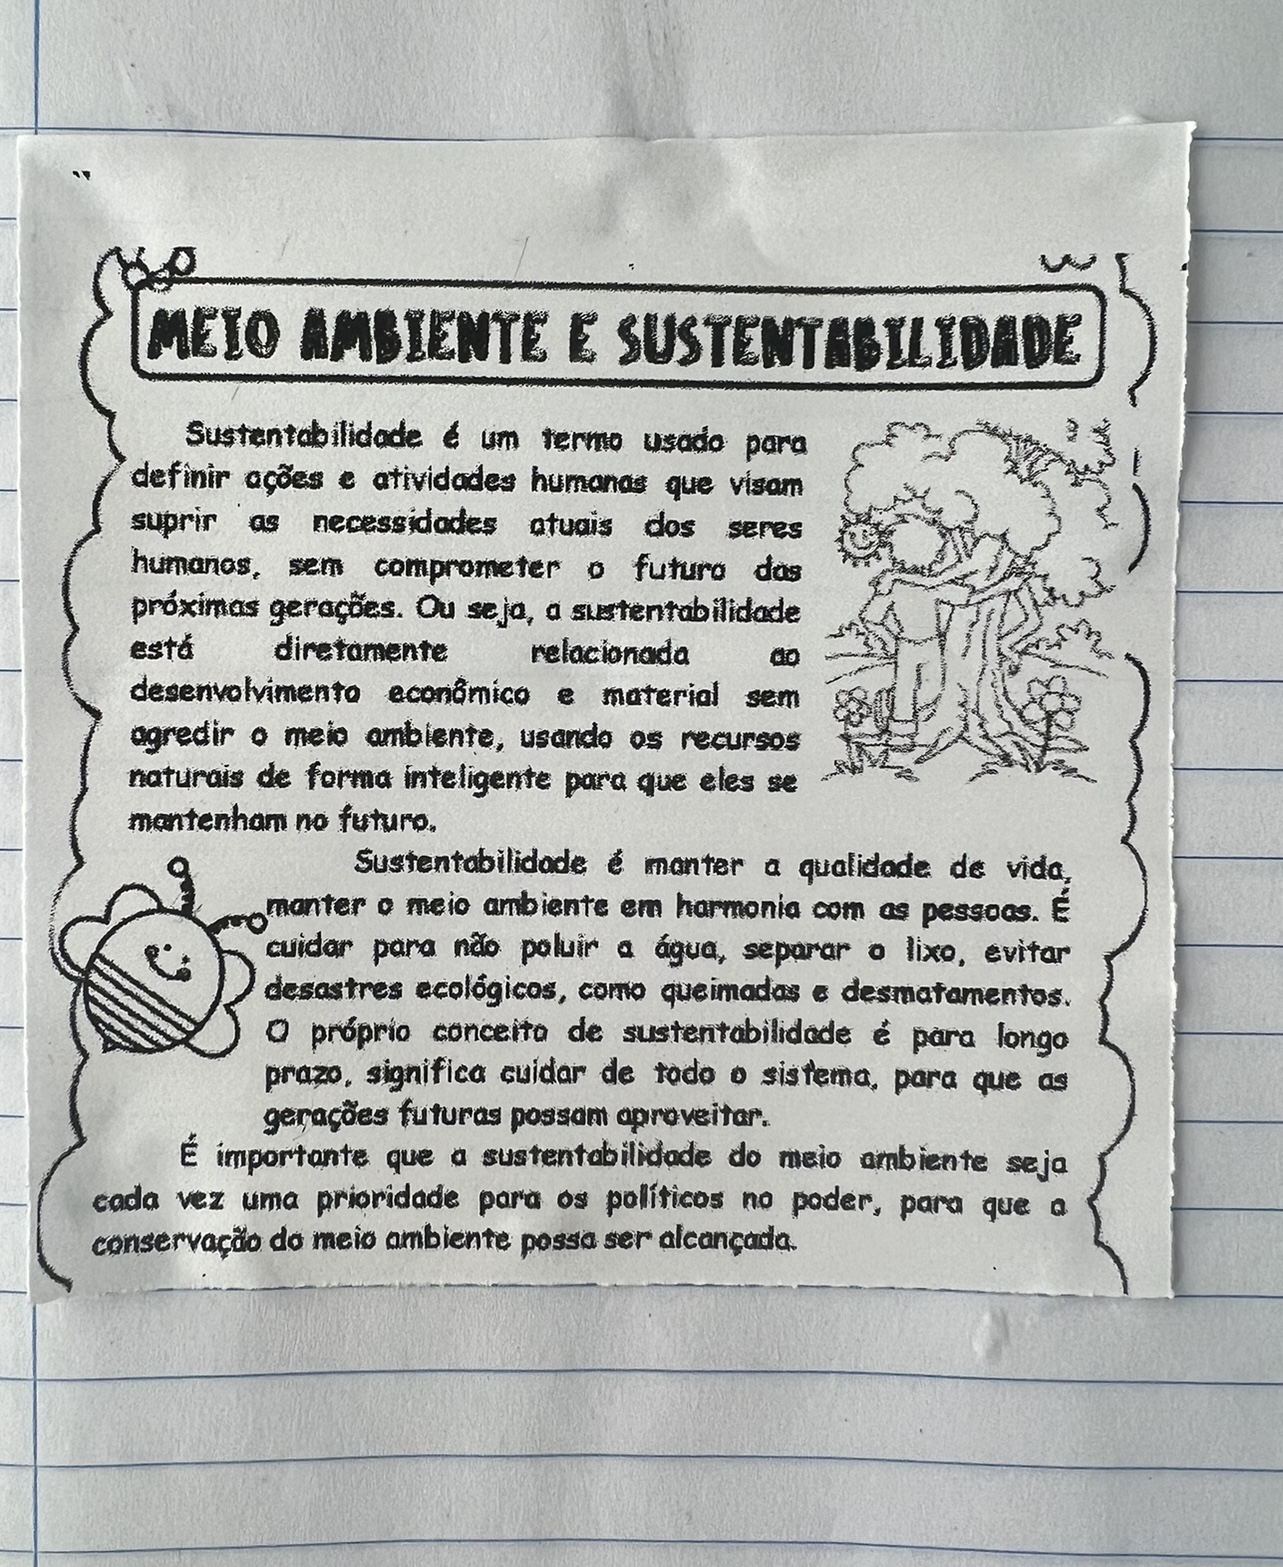 MEIO AMBIENTE E SUSTENTABILIDADE
Sustentabilidade é um termo usado para
definir ações e atividades humanas que visam
suprir as necessidades atuais dos seres
humanos, sem comprometer o futuro das
próximas gerações. Ou seja, a sustentabilidade
está diretamente relacionada ao
desenvolvimento econômico e material sem
agredir o meio ambiente, usando os recursos
naturais de forma inteligente para que eles se
mantenham no futuro.
Sustentabilidade é manter a qualidade de vida,
manter o meio ambiente em harmonia com as pessoas. É
cuidar para não poluir a água, separar o lixo, evitar
desastres ecológicos, como queimadas e desmatamentos.
O próprio conceito de sustentabilidade é para longo
prazo, significa cuidar de todo o sistema, para que as
gerações futuras possam aproveitar.
É importante que a sustentabilidade do meio ambiente seja
cada vez uma prioridade para os políticos no poder, para que a
conservação do meio ambiente possa ser alcançada.